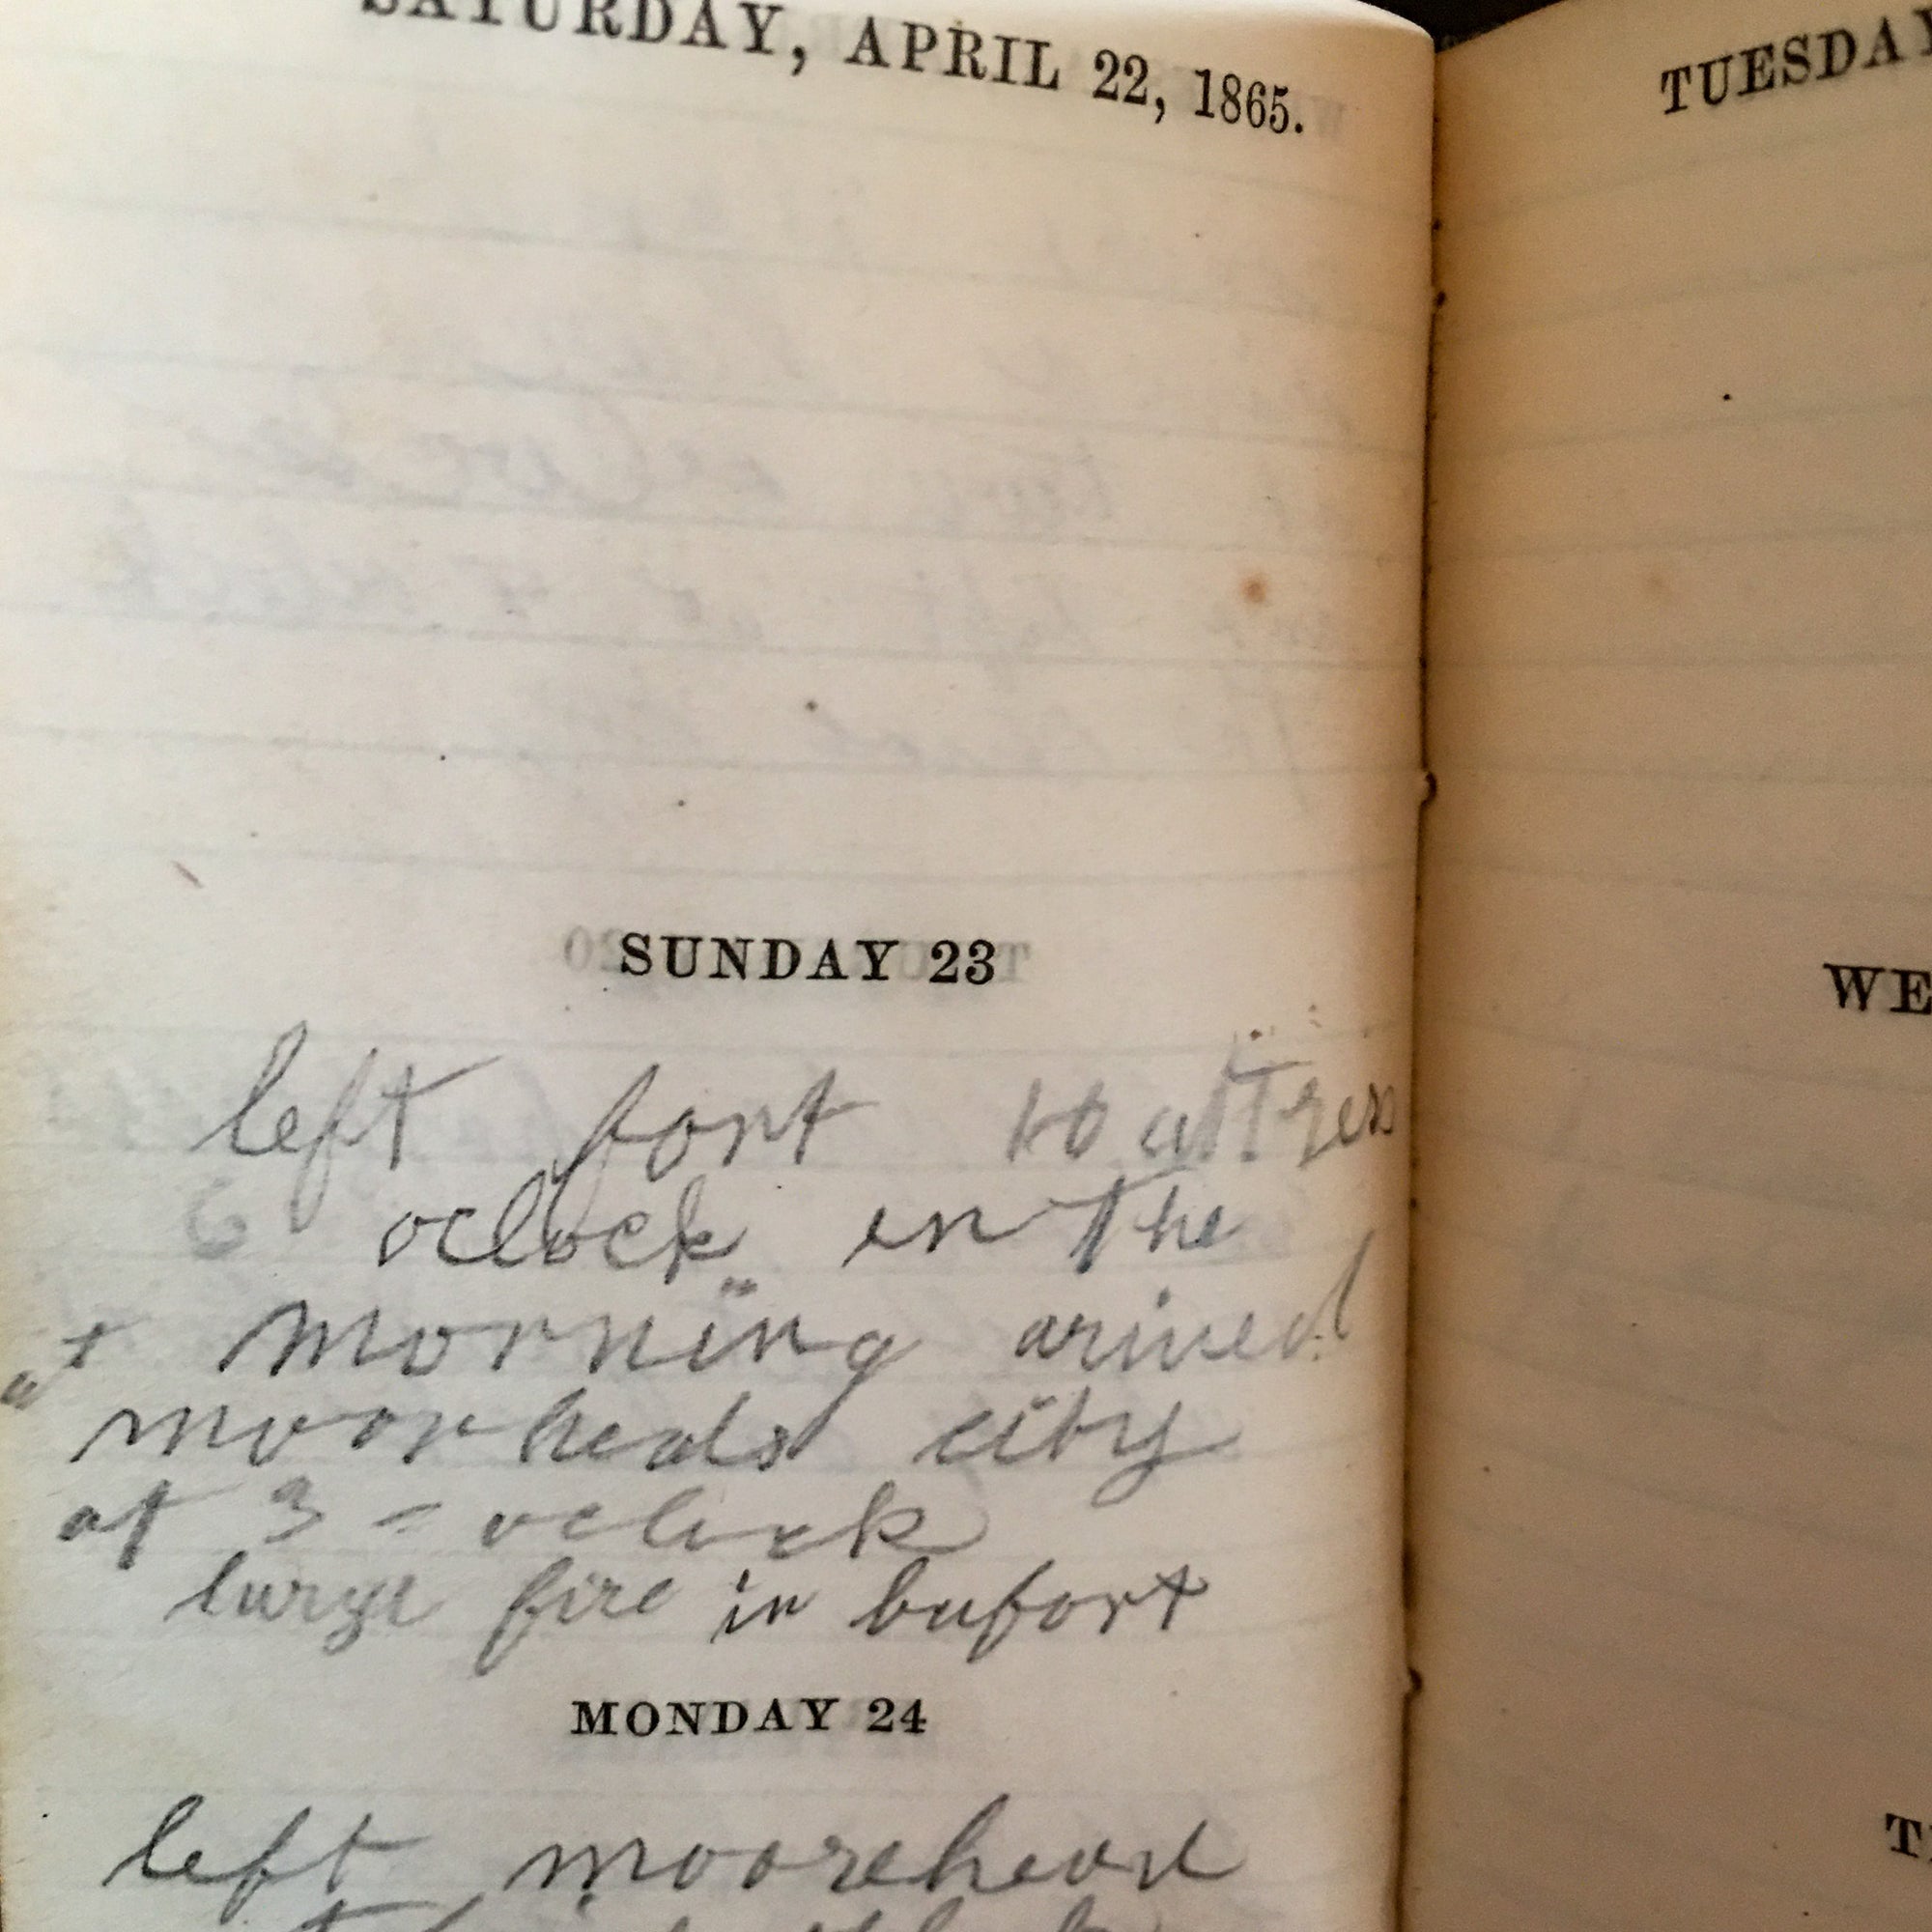 SATURDAY, APRIL 22, 1865.
SUNDAY 23
left fort
oclock in the
morning arived
at moorheads city
at 3 - oclock
large fire in bufort
MONDAY 24
left moorehead
TUESDAY
WE